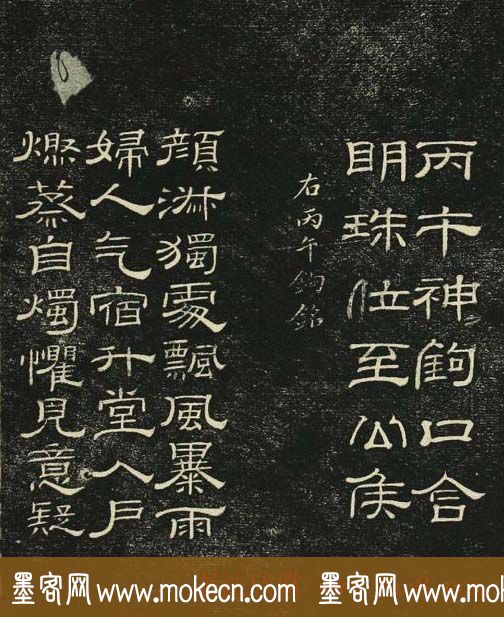 丙午神鉤口含
明珠位至公侯
右丙午鉤銘
顏淑獨處飄風暴雨
婦人气宿升堂入戶
燃蒸自燭懼見意疑
墨客网 www.mokecn.com 墨客网 www.mokecn.com